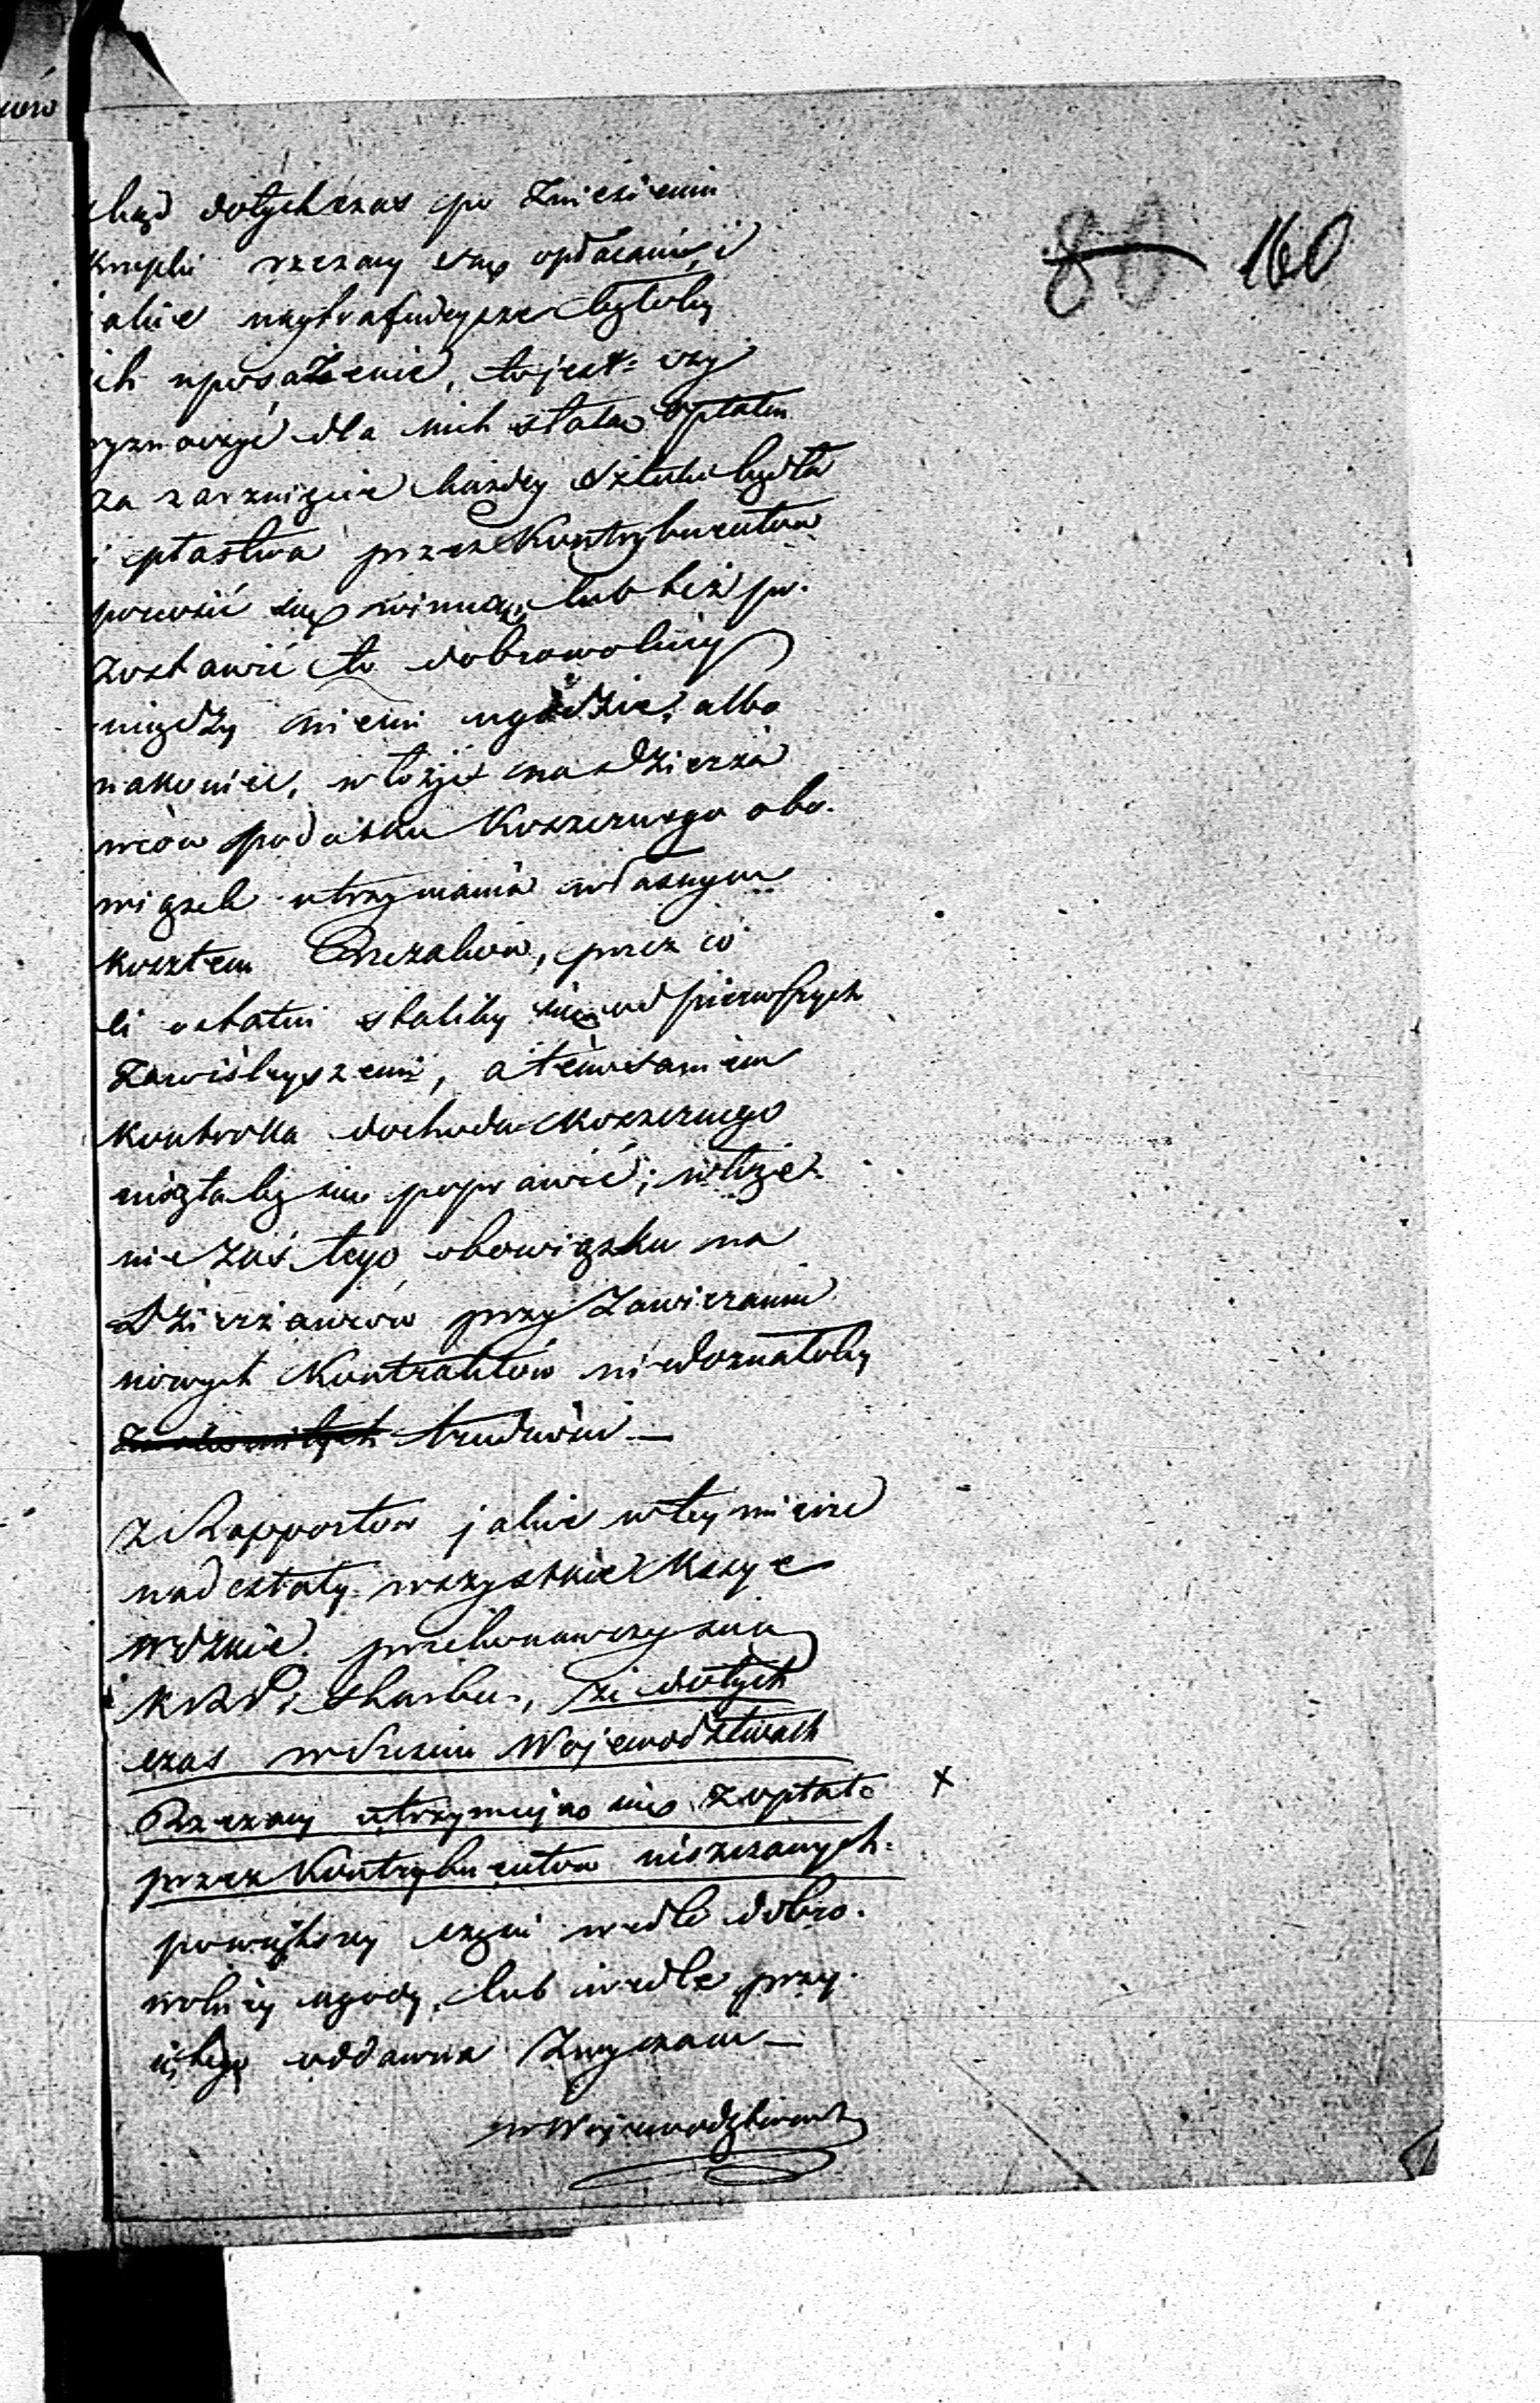 80 160
kąd dotychczas po zniesieniu
krupki rzezacy są opłacani, i
jakie naytrafnieysze byłoby
ich uposażenie, to jest: czy
wyznaczyć dla nich stałą opłatę
za zarznięcie każdey sztuki bydła
i ptastwa przez Kontrybuentów
ponosić się winną, lub też po-
zostawić to dobrowolney
między niemi ugodzie, albo
nakoniec, włożyć na dzierża
wców podatku Koszernego obo-
wiązek utrzymania własnym
kosztem Rzezaków, przez co
ci ostatni staliby się od pierwszych
zawisłszemi, a tém samém
kontrolla dochodu koszernego
mogłaby się poprawić; włoże-
nie zaś tego obowiązku na
Dzierżawców przy zawieraniu
nowych Kontraktów niedoznałoby
trudności —
Z Rapportów jakie w tey mierze
nadesłały wszystkie Kssye
Wdzkie przekonawszy się
K R P i Skarbu, że dotych
czas w Woiewodztwach
Rzezacy utrzymują się z opłat x
przez Kontrybuentów uiszczanych
powiększey części wedle dobro-
wolney ugody, lub wedle przy-
iętego oddawna zwyczaiu —
w Woiewodztwach